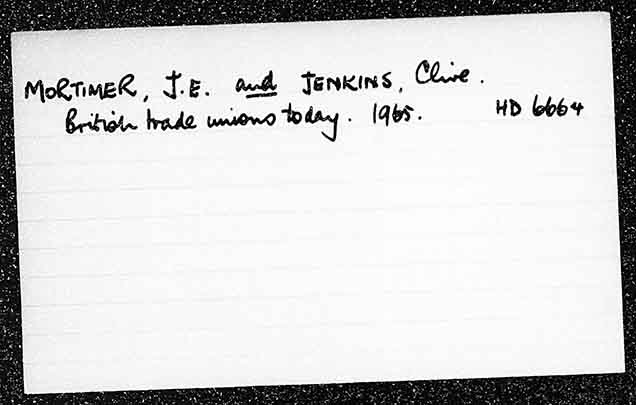 MORTIMER, J.E. and JENKINS, Clive.
British trade unions today. 1965. HD 6664